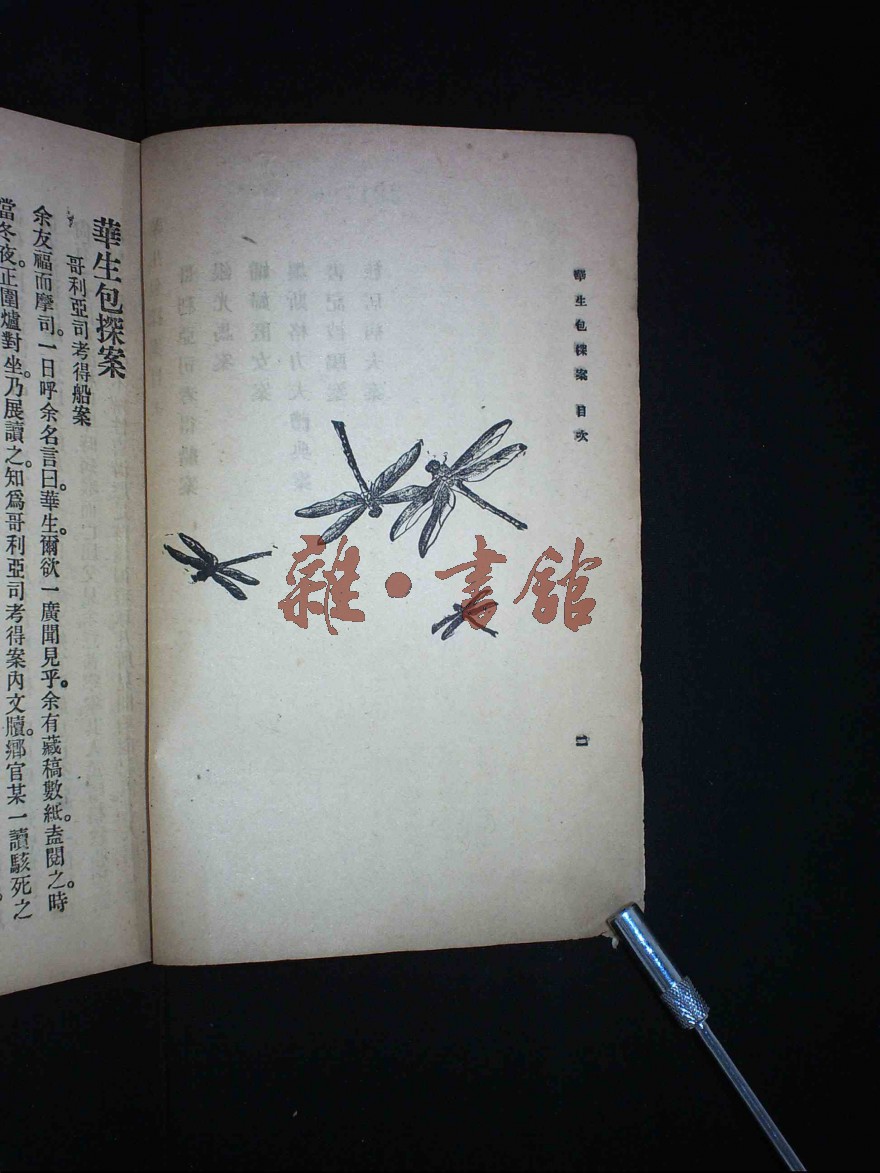 華生包探案 目次
二
雜·書館
華生包探案
哥利亞司考得船案
余友福而摩司。一日呼余名言曰。華生。爾欲一廣聞見乎。余有藏稿數紙。盍閱之。時
當冬夜。正圍爐對坐。乃展讀之。知爲哥利亞司考得案內文牘。鄉官某一讀駭死之